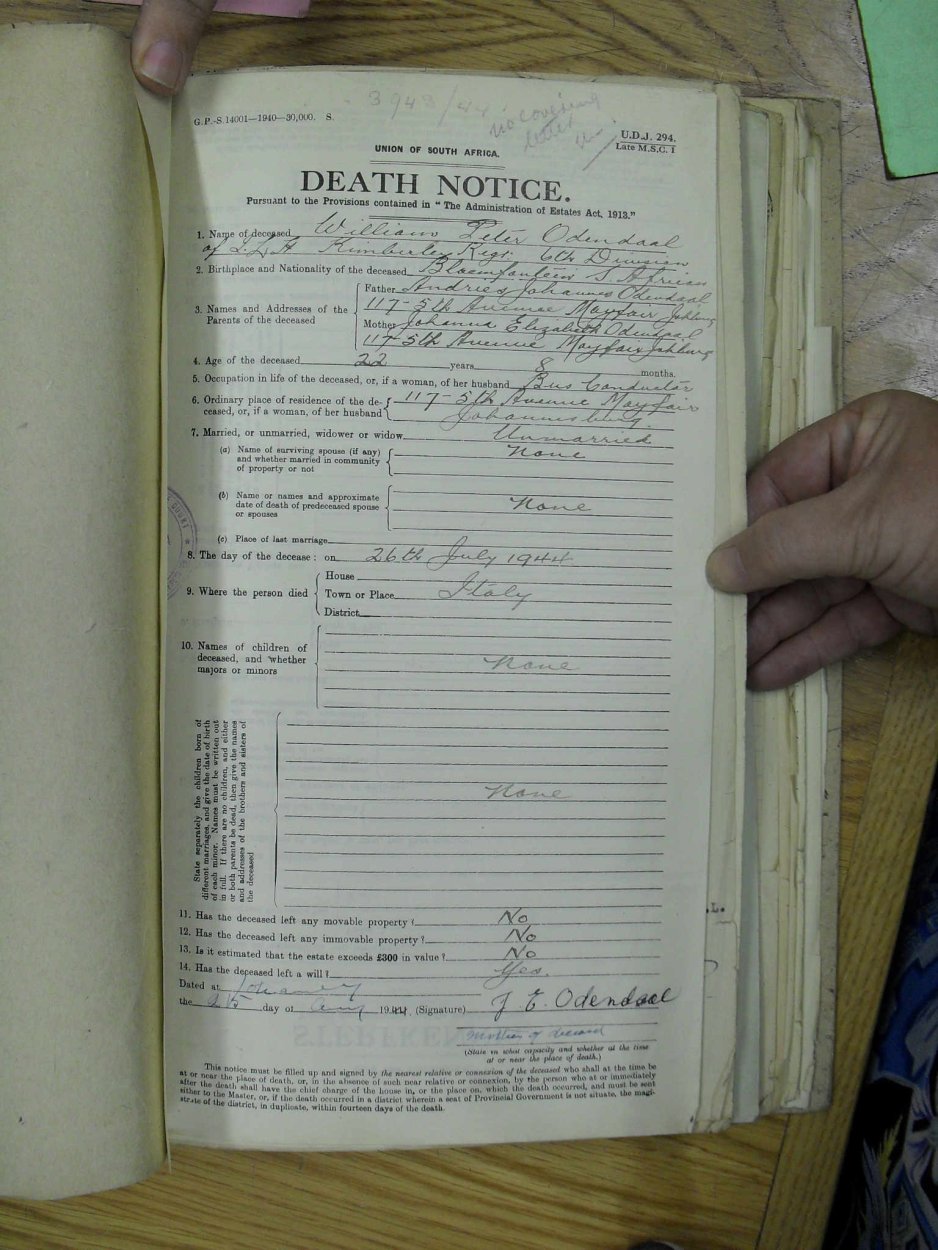 3948/44
no covering
letter
G.P.-S.14001—1940—30,000. S.
U.D.J. 294.
Late M.S.C. I
UNION OF SOUTH AFRICA.
DEATH NOTICE.
Pursuant to the Provisions contained in "The Administration of Estates Act, 1913."
1. Name of deceased William Peter Odendaal
of I.L.H. Kimberley Regt. 6th Division
2. Birthplace and Nationality of the deceased Bloemfontein S. African
3. Names and Addresses of the Parents of the deceased
Father Andries Johannes Odendaal
117-5th Avenue Mayfair Jhburg
Mother Johanna Elizabeth Odendaal
117-5th Avenue Mayfair Johburg
4. Age of the deceased 22 years 8 months.
5. Occupation in life of the deceased, or, if a woman, of her husband Bus Conductor
6. Ordinary place of residence of the de- 117-5th Avenue Mayfair
ceased, or, if a woman, of her husband Johannesburg.
7. Married, or unmarried, widower or widow Unmarried
(a) Name of surviving spouse (if any) None
and whether married in community
of property or not
(b) Name or names and approximate
date of death of predeceased spouse None
or spouses
(c) Place of last marriage
8. The day of the decease: on 26th July 1944
9. Where the person died
House
Town or Place Italy
District
10. Names of children of
deceased, and whether None
majors or minors
State separately the children born of
different marriages, and give the date of birth
of each minor. Names must be written out
in full. If there are no children, and either
or both parents be dead, then give the names
and addresses of the brothers and sisters of
the deceased
None
11. Has the deceased left any movable property? No
12. Has the deceased left any immovable property? No
13. Is it estimated that the estate exceeds £300 in value? No
14. Has the deceased left a will? Yes.
Dated at
the 25 day of Aug 1944 (Signature) J E Odendaal
Mother of deceased
(State in what capacity and whether at the time
at or near the place of death.)
This notice must be filled up and signed by the nearest relative or connexion of the deceased who shall at the time be
at or near the place of death, or, in the absence of such near relative or connexion, by the person who at or immediately
after the death shall have the chief charge of the house in, or the place on, which the death occurred, and must be sent
either to the Master, or, if the death occurred in a district wherein a seat of Provincial Government is not situate, the magi-
strate of the district, in duplicate, within fourteen days of the death.